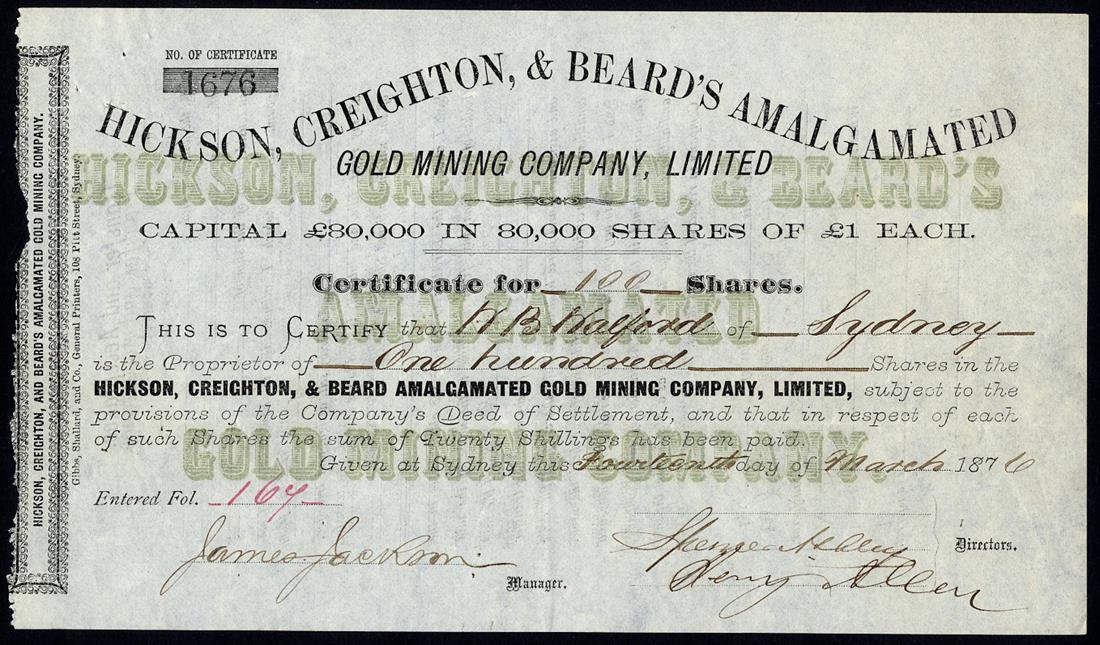 NO. OF CERTIFICATE
1676
HICKSON, CREIGHTON, & BEARD'S AMALGAMATED
GOLD MINING COMPANY, LIMITED
HICKSON, CREIGHTON, & BEARD'S
CAPITAL £80,000 IN 80,000 SHARES OF £1 EACH.
Certificate for 100 Shares.
AMALGAMATED
THIS IS TO CERTIFY that W B Walford of Sydney
is the Proprietor of One hundred Shares in the
HICKSON, CREIGHTON, & BEARD AMALGAMATED GOLD MINING COMPANY, LIMITED, subject to the
provisions of the Company's Deed of Settlement, and that in respect of each
of such Shares the sum of Twenty Shillings has been paid.
GOLD MINING COMPANY.
Given at Sydney this Fourteenth day of March 1876
Entered Fol. 164
James Jackson
Manager.
Henry Allen
Directors.
HICKSON, CREIGHTON, AND BEARD'S AMALGAMATED GOLD MINING COMPANY.
Gibbs, Shallard, and Co., General Printers, 108 Pitt Street, Sydney.